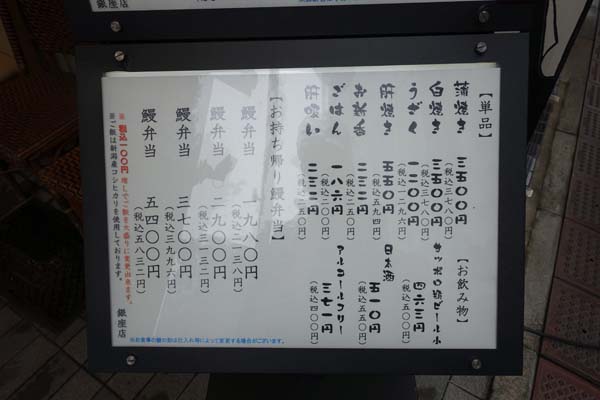 銀座店
【単品】
蒲焼き 三五〇〇円
(税込三七八〇円)
白焼き 三五〇〇円
(税込三七八〇円)
うざく 一二〇〇円
(税込一二九六円)
肝焼き 五五〇円
(税込五九四円)
お新香 二三二円
(税込二五〇円)
ごはん 一八六円
(税込二〇〇円)
肝吸い 二三二円
(税込二五〇円)
【お飲み物】
サッポロ瓶ビール小
四六三円
(税込五〇〇円)
日本酒
五一〇円
(税込五五〇円)
アルコールフリー
三七一円
(税込四〇〇円)
【お持ち帰り鰻弁当】
鰻弁当 一九八〇円
(税込二一三八円)
鰻弁当 二九〇〇円
(税込三一三二円)
鰻弁当 三七〇〇円
(税込三九九六円)
鰻弁当 五四〇〇円
(税込五八三二円)
※税込一〇〇円増しでご飯を大盛りに変更出来ます。
※ご飯は新潟産コシヒカリを使用しております。
銀座店
※お食事の鰻の数は仕入れ等によって変更する場合がございます。